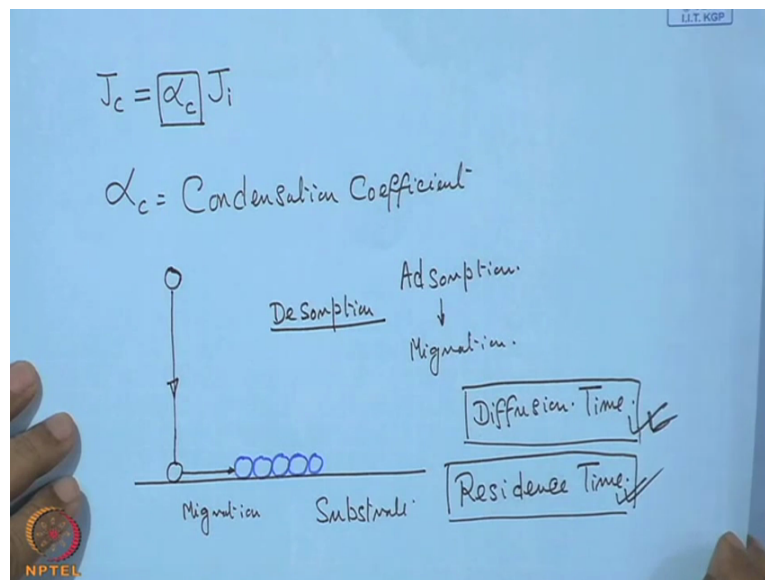 I.I.T. KGP
J_c = α_c J_i
α_c = Condensation Coefficient
Adsorption.
Desorption
Migration.
Diffusion Time.
Residence Time.
Migration
Substrate.
NPTEL